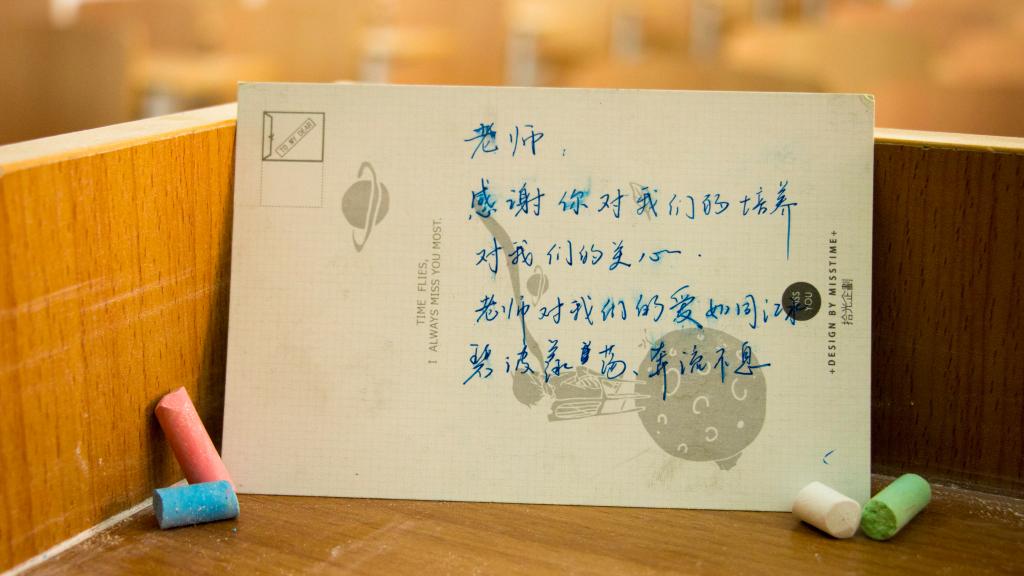 TO MY DEAR
老师：
感谢你对我们的培养
对我们的关心.
老师对我们的爱如同江水
碧波荡、奔流不息
TIME FLIES,
I ALWAYS MISS YOU MOST.
YOU
+DESIGN BY MISSTIME+
拾光企劃